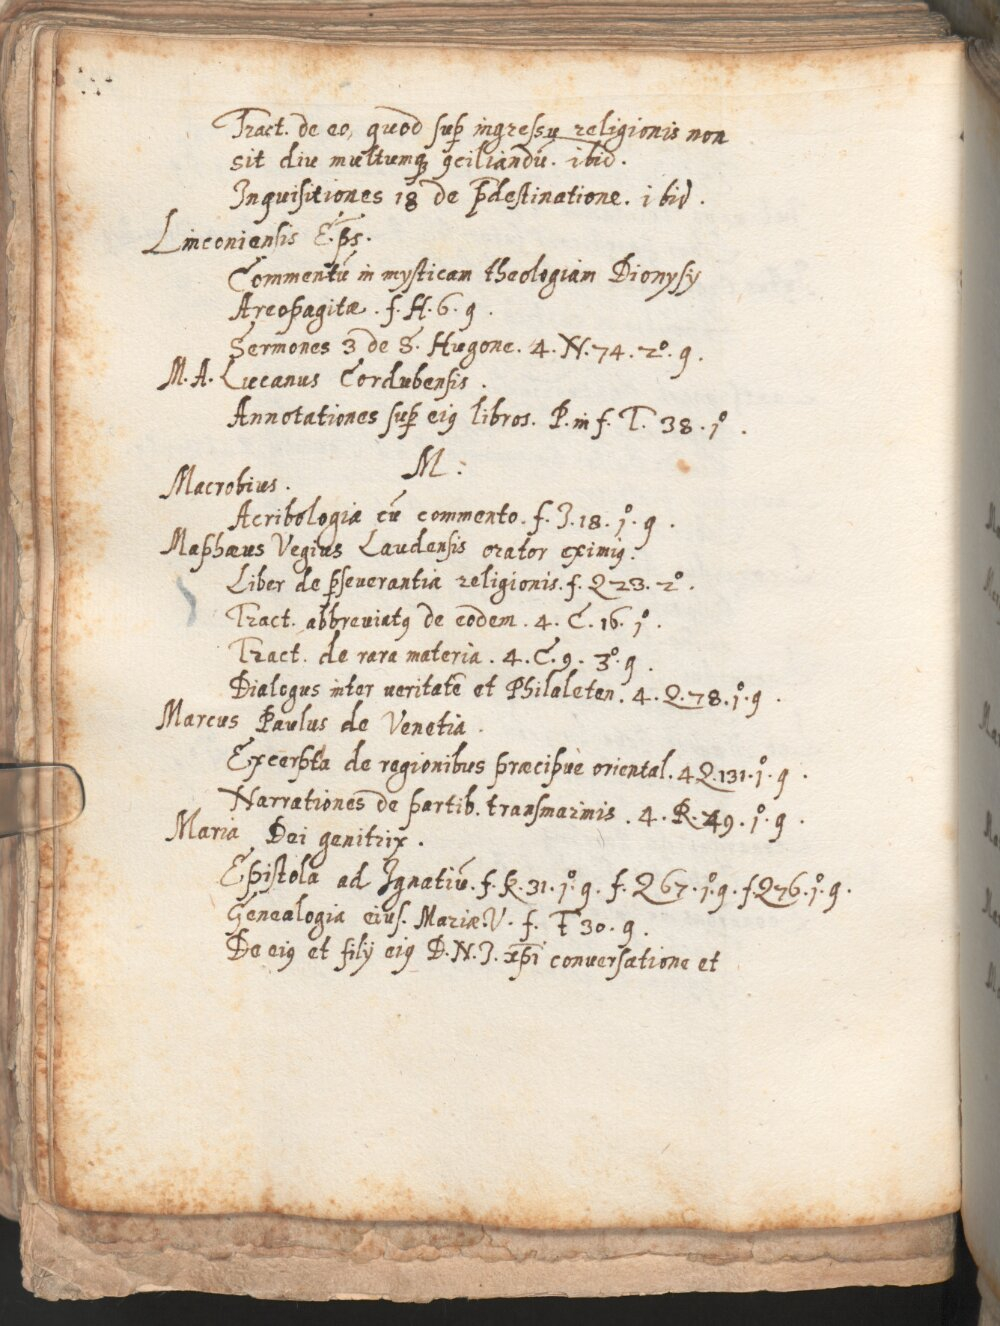 Tract. de eo, quod sup̱ ingressu religionis non
sit diu multumq̨ ꝯciliandũ. ibid.
Inquisitiones 18 de p̄destinatione. ibid.
Linconiensis Ep̃s.
Commentũ in mysticam theologiam Dionysij
Areopagitæ. f. H. 6. ꝯ.
Sermones 3 de S. Hugone. 4. N. 74. 2º. ꝯ.
M. A. Lucanus Cordubensis.
Annotationes sup̱ eiꝰ libros. P. in f. T. 38. 1º.
M.
Macrobius.
Acribologia cũ commento. f. I. 18. 1º. ꝯ.
Maphæus Vegius Laudensis orator eximiꝰ.
Liber de p̱seuerantia religionis. f. Q 23. 2º.
Tract. abbreuiatꝰ de eodem. 4. C. 16. 1º.
Tract. de rara materia. 4. C. 9. 3º. ꝯ.
Dialogus inter ueritatẽ et Philaleten. 4. Q. 78. 1º. ꝯ.
Marcus Paulus de Venetia.
Excerpta de regionibus præcipuè oriental. 4 Q. 131. 1º. ꝯ.
Narrationes de partib. transmarinis. 4. R. 49. 1º. ꝯ.
Maria Dei genitrix.
Epistola ad Ignatiũ. f. K. 31. 1º. ꝯ. f. Q 67. 1º. ꝯ. f. Q 76. 1º. ꝯ.
Genealogia eius. Mariæ. V. f. F 30. ꝯ.
De eiꝰ et filij eiꝰ D. N. I. xp̃i conuersatione et